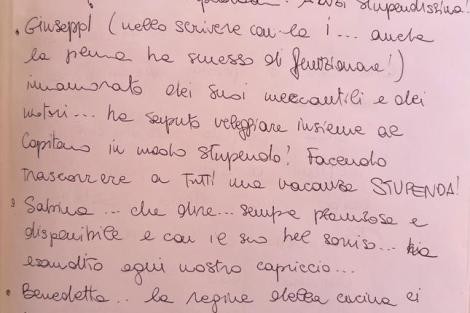 A Voi stupendissima!
• Giuseppl (nello scrivere con la i... anche
la penna ha smesso di funzionare!)
innamorato dei suoi mercantili e dei
motori... ha saputo veleggiare insieme al
Capitano in modo stupendo! Facendo
trascorrere a TUTTI una vacanza STUPENDA!
• Sabrina... che dire... sempre premurosa e
disponibile e con il suo bel sorriso... ha
esaudito ogni nostro capriccio...
• Benedetta.. la regina della cucina ci